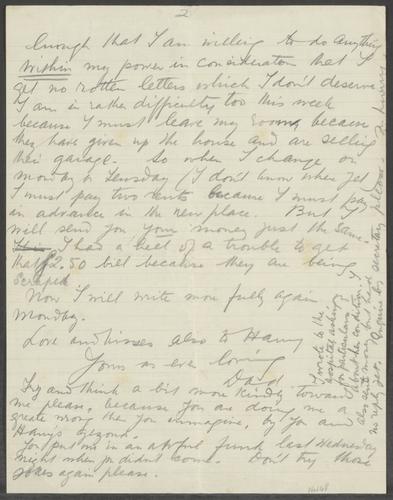 2
Enough that I am willing to do anything
within my power in consideration that I
get no rotten letters which I don't deserve
I am in rather difficulty too this week
because I must leave my room because
they have given up the house and are selling
their garage. So when I change on
Monday or Tuesday (I don't know when yet
I must pay two rents because I must pay
in advance in the new place. But I
will send you your money just the same.
I had a heel of a trouble to get
that $2.50 bill because they are being
scraped
Now I will write more fully again
Monday.
Love and kisses also to Harry
Yours as ever loving
Dad
Try and think a bit more kindly toward
me please, because you are doing me a
greate wrong than you immagine, by you and
Harry's
You put me in an awful funk last Wednesday
night when you didn't come. Don't try those
jokes again please.
I wrote to the
hospital asking
for particulars
about her condition. I
also sent money but had
no reply yet. Inquire by secretary please.